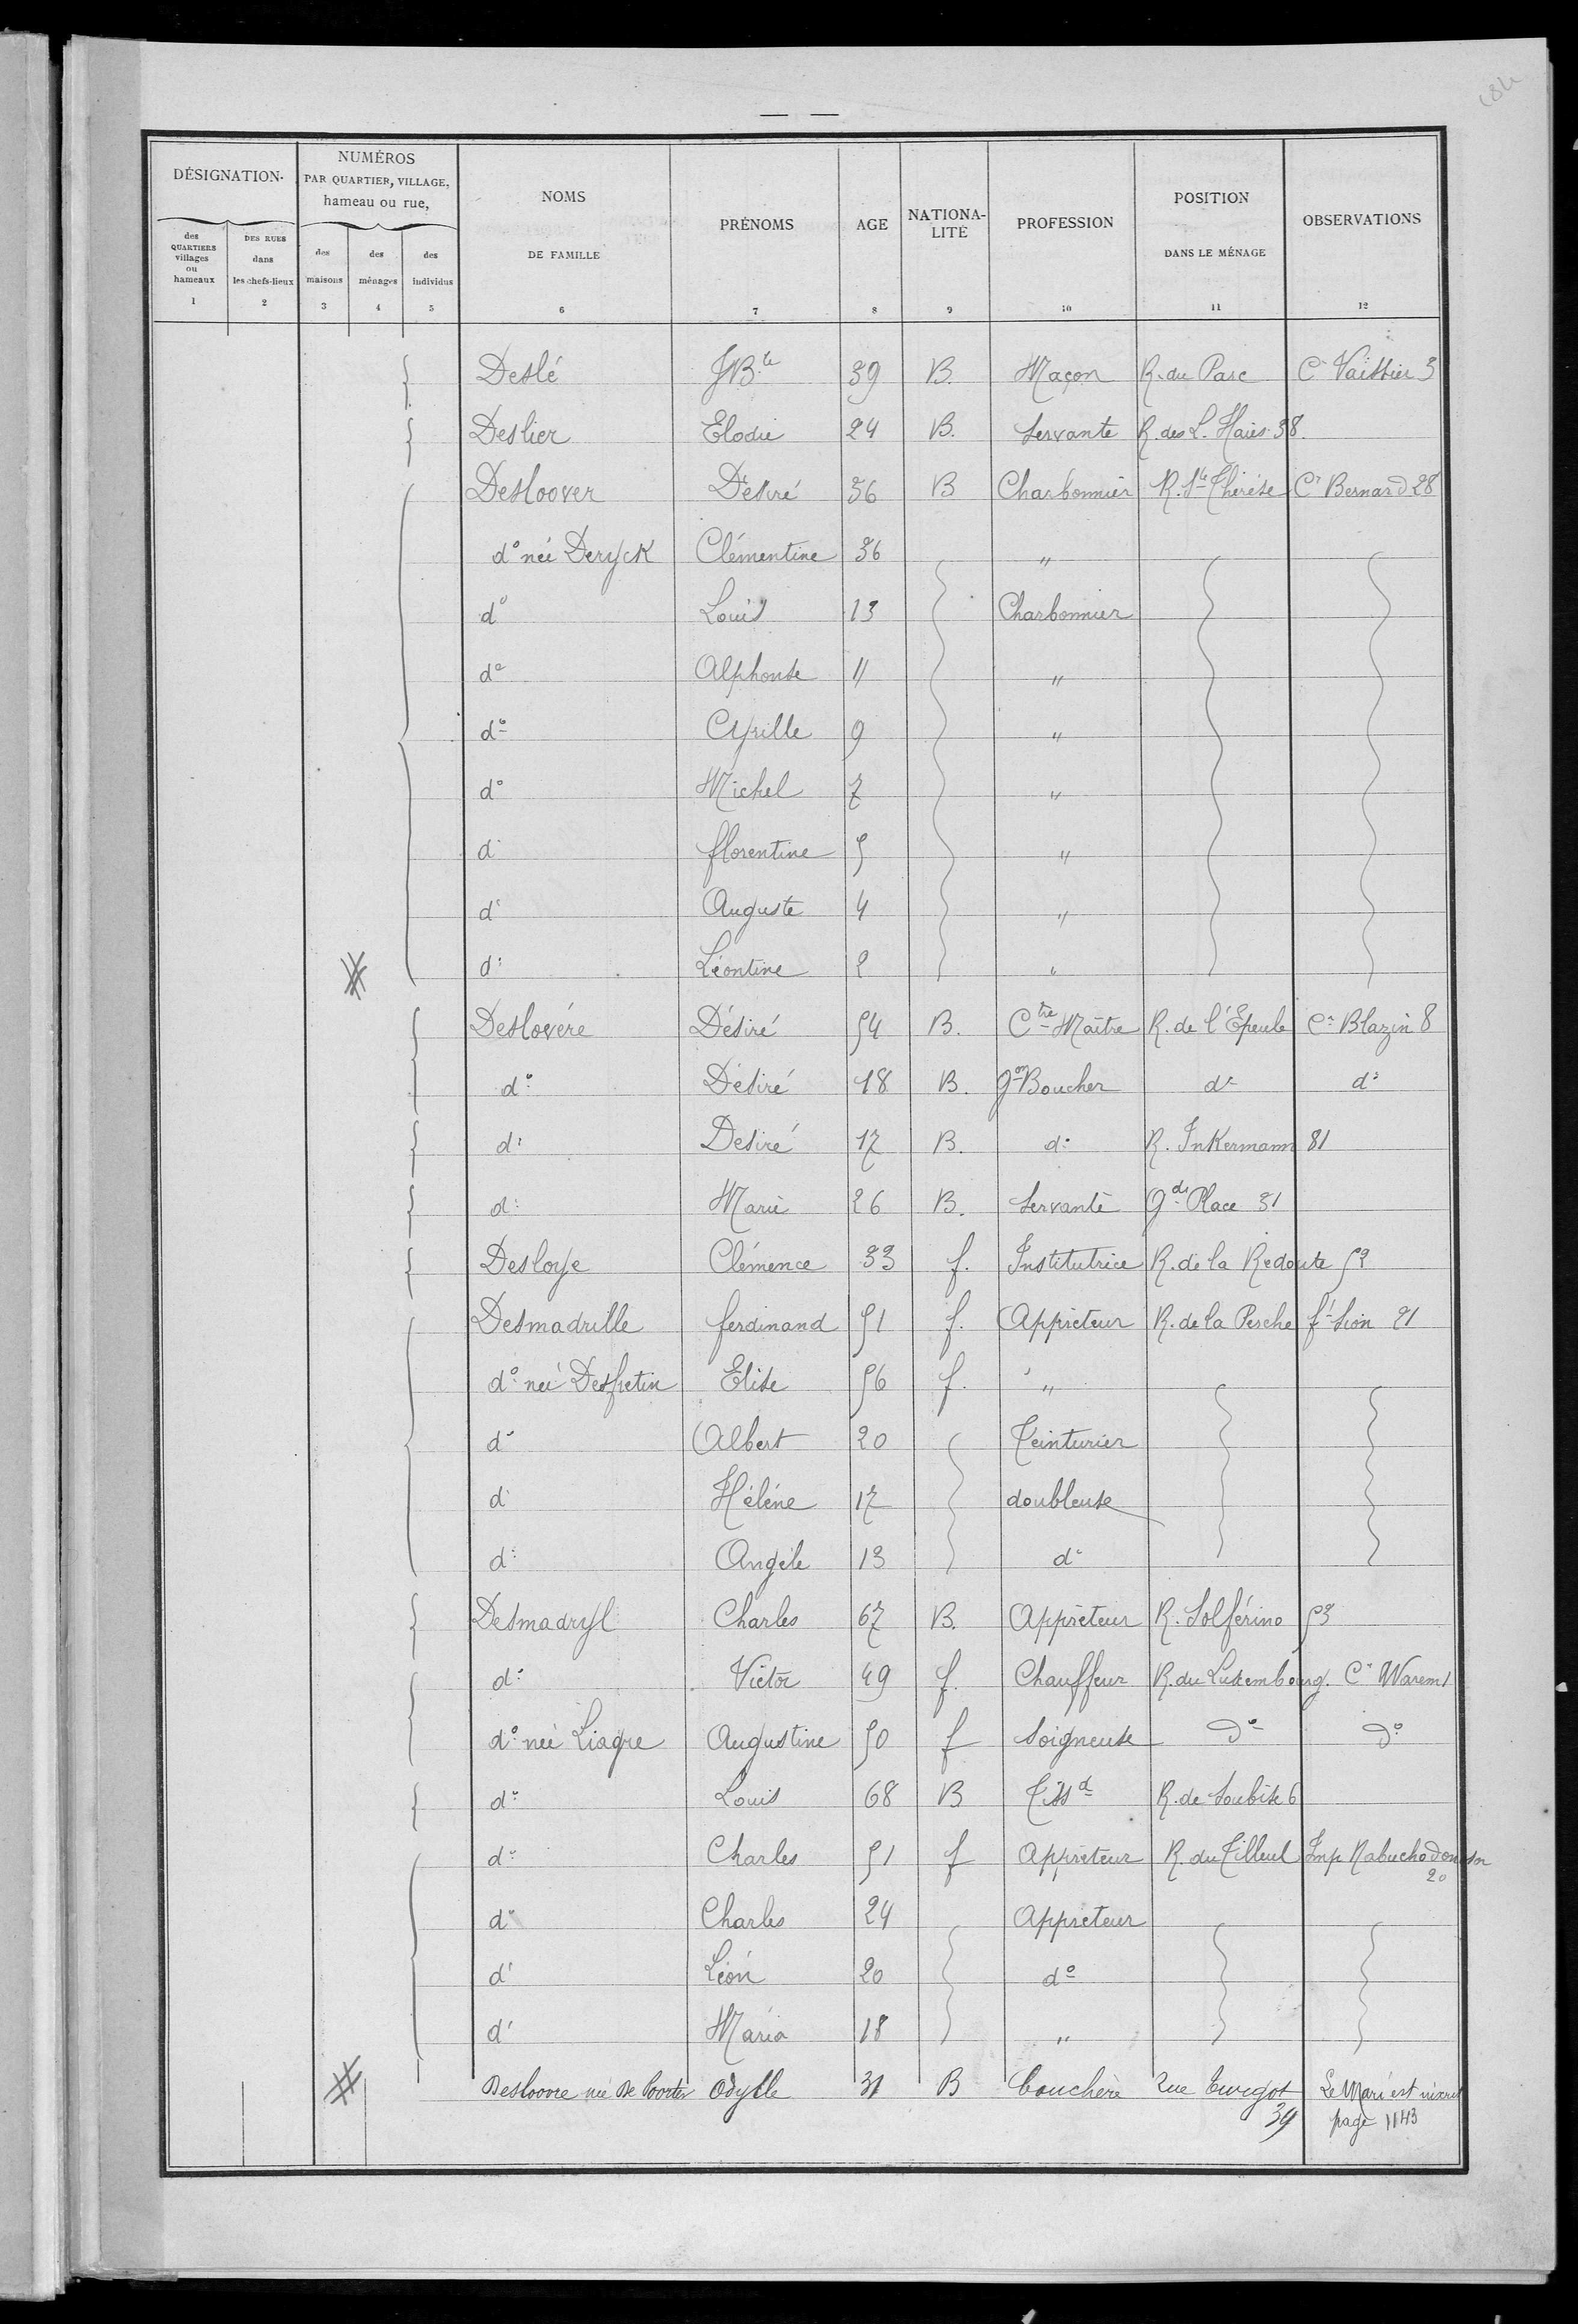 DÉSIGNATION.
NUMÉROS
PAR QUARTIER, VILLAGE,
hameau ou rue,
NOMS
DE FAMILLE
PRÉNOMS
AGE
NATIONA-
LITÉ
PROFESSION
POSITION
DANS LE MÉNAGE
OBSERVATIONS
des
QUARTIERS
villages
ou
hameaux
DES RUES
dans
les chefs-lieux
des
maisons
des
ménages
des
individus
1 2 3 4 5 6 7 8 9 10 11 12
Deslé JBte 39 B. Maçon R. du Parc Cr Vaissier 3
Deslier Elodie 24 B. Servante R. des L. Haies 38.
Desloover Désiré 36 B Charbonnier R. Ste Thérèse Cr Bernard 28
do née Deryck Clémentine 36 "
do Louis 13 Charbonnier
do Alphonse 11 "
do Cyrille 9 "
do Michel 7 "
do florentine 5 "
do Auguste 4 "
do Léontine 2 "
Deslovére Désiré 54 B. Ctre Maître R. de l'Epeule Cr Blazin 8
do Désiré 18 B. Gon Boucher do do
do Desiré 17 B. do R. Inkermann 81
do Marie 26 B. Servante Gde Place 31
Desloye Clémence 33 f. Institutrice R. de la Redoute 52
Desmadrille ferdinand 51 f. Appréteur R. de la Perche ft Sion 21
do née Despretin Elise 56 f. "
do Albert 20 Teinturier
do Héléne 17 doubleuse
do Angèle 13 do
Desmadryl Charles 67 B. Appréteur R. Solférino 53
do Victor 49 f. Chauffeur R. du Luxembourg. Cr Warem 1
do née Liagre Augustine 50 f Soigneuse do do
do Louis 68 B Tissd R. de Soubise 6
do Charles 51 f Appréteur R. du Tilleul Imp Nabuchodonosor
20
do Charles 24 Appréteur
do Léon 20 do
do Maria 18 "
Desloovre née De Poorter Odylle 31 B Bouchère Rue Turgot Le Mari est inscrit
39 page 1143